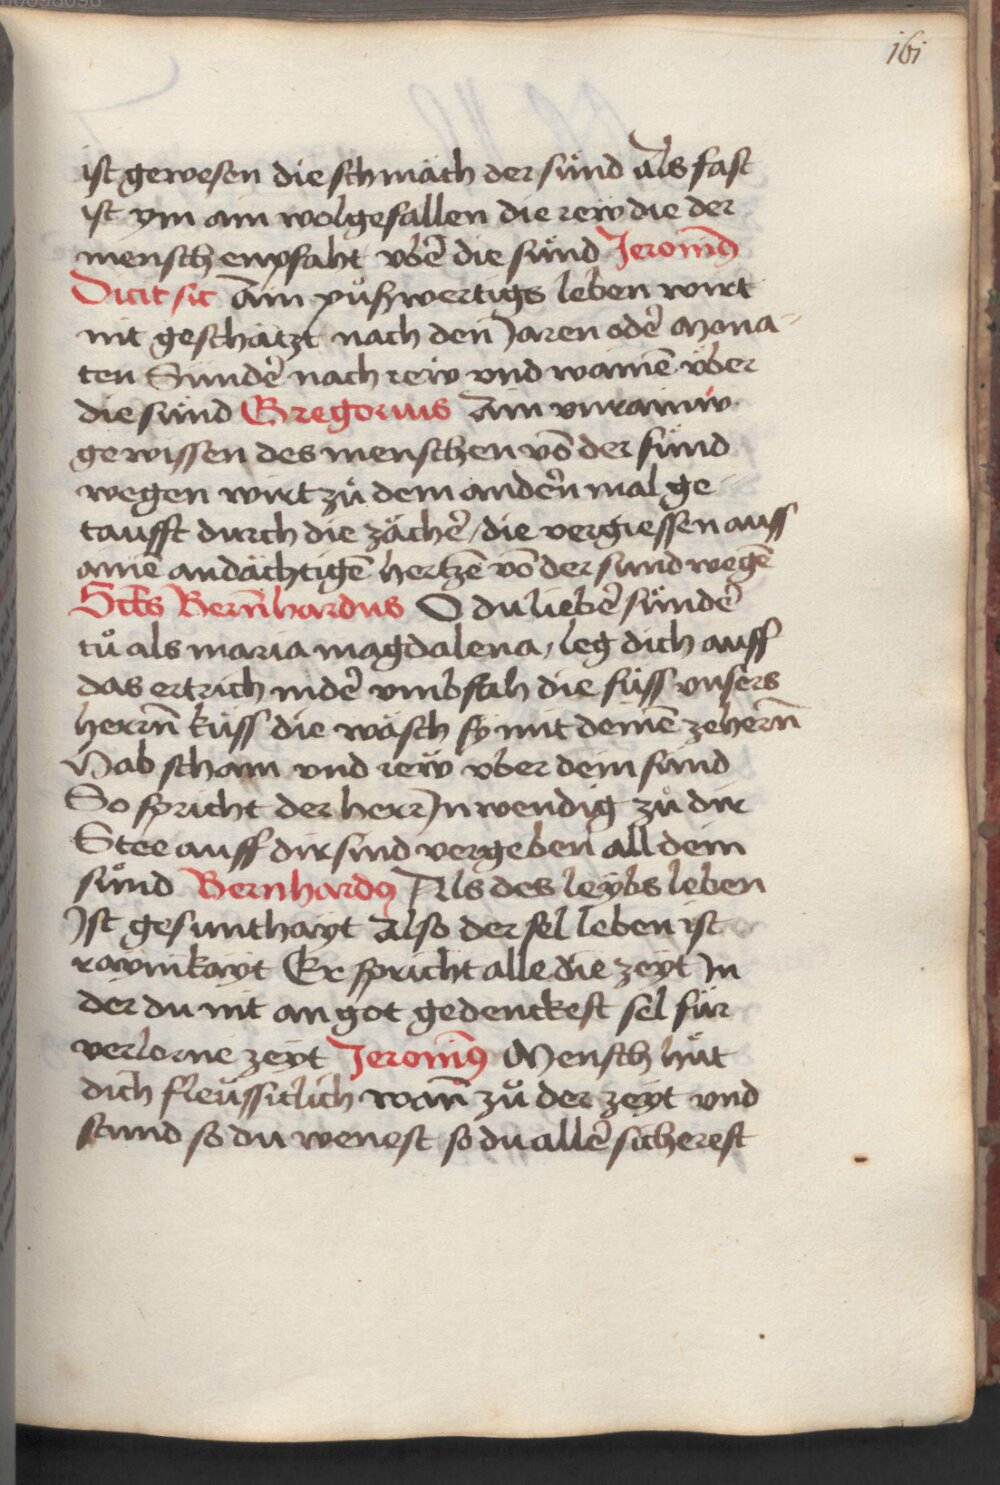 161
ist gewesen die schmäch der sünd Als fast
ist ym ain wolgefallen die rew die der
mensch empfaht vbẽ die sünd Jeronimꝰ
Dicit sic Ain pußwertigs leben wirt
nit geschätzt nach den Jaren odẽ mona-
ten Sundẽ nach rew vnd wainẽ vber
die sünd Gregorius Ain vnrainiv
gewissen des menschen vō der sund
wegen wirt zů dem andẽn mal ge
taufft durch die zächẽ / die vergiessen auss
ainẽ andächtigẽ hertzẽ vō der sund wegẽ
Sctūs Bern̄hardus O du liebẽ sündẽ
tů als maria magdalena, leg dich auff
das ertrich nidẽ vmbfah die füss vnsers
herrn̄ küss die wäsch sy mit deinẽ zehern̄
Hab scham vnd rew vber dein sünd
So spricht der herr Jnwendig zů dir
Stee auff dir sind vergeben all dein
sünd Bernhardꝰ Als des leybs leben
Ist gesunthayt Also der sel leben ist
raynikayt Er spricht alle die zeyt Jn
der du nit an got gedenckest sel für
verlorne zeyt Jeronimꝰ Mensch hüt
dich fleussiclich wan̄ zů der zeyt vnd
stund so du wenest so du allẽ sicherest